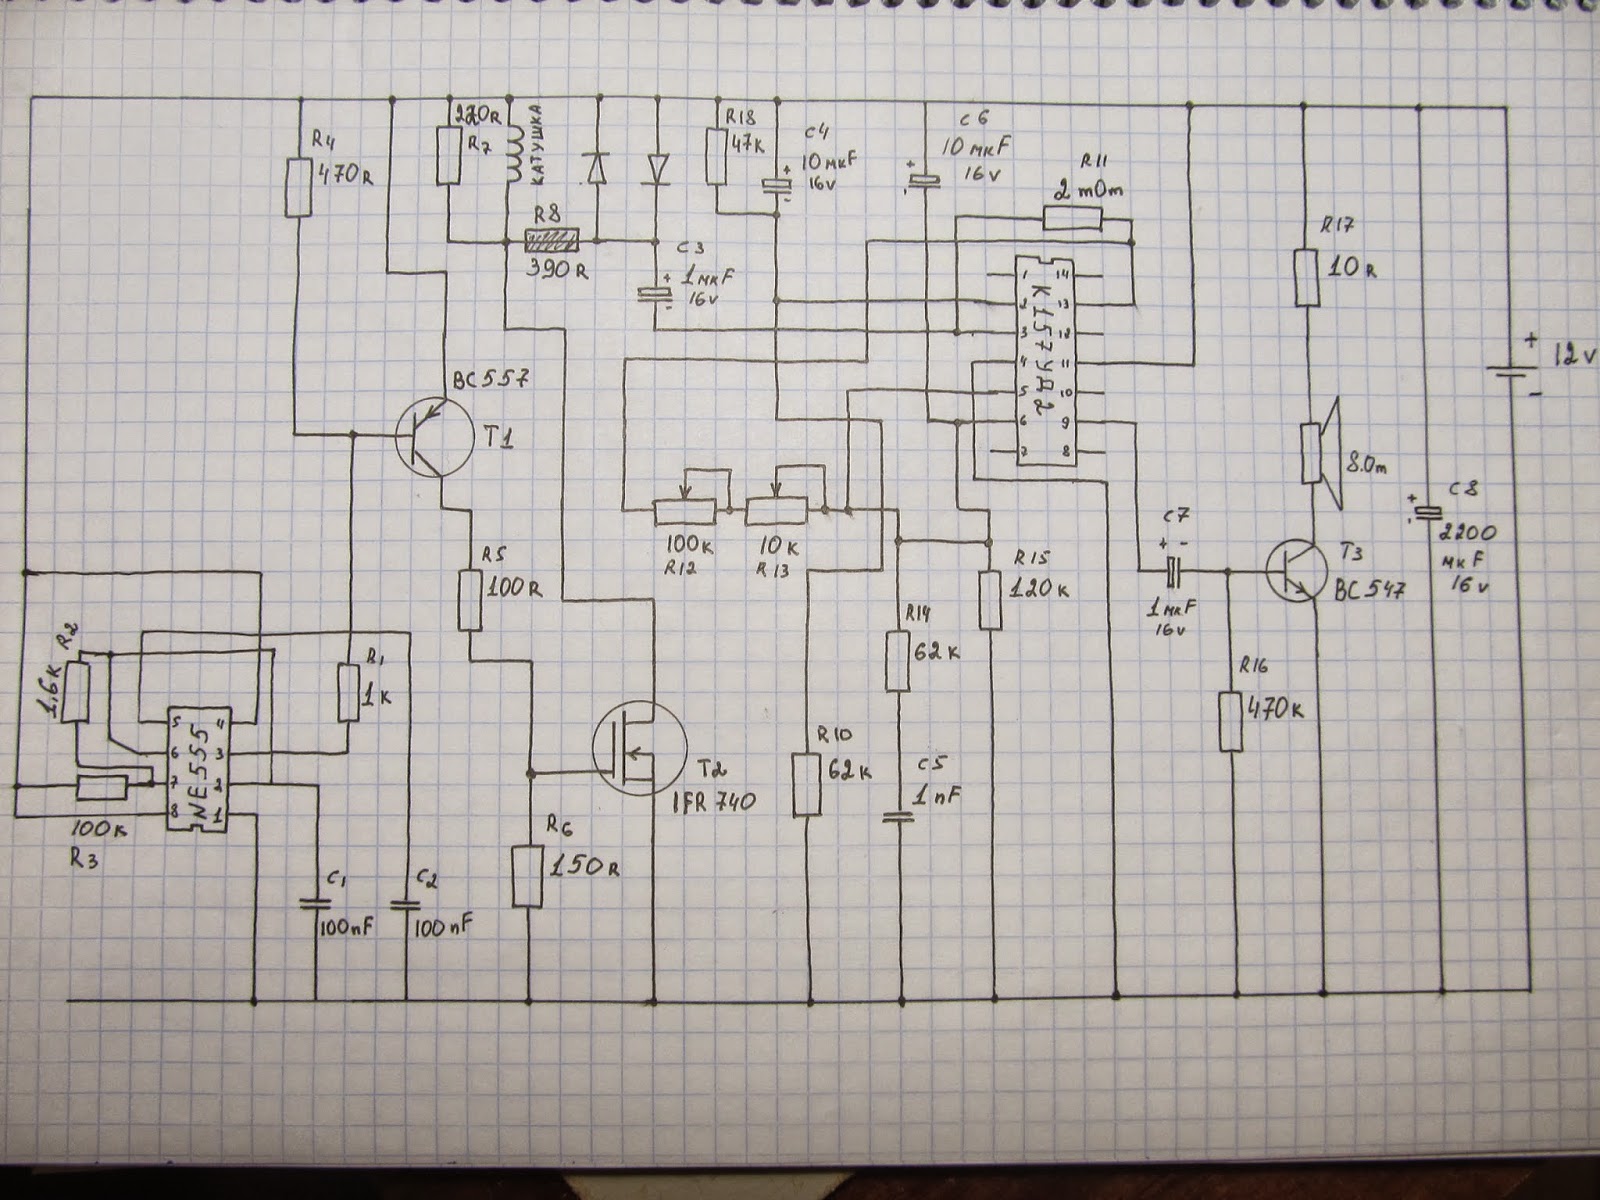 R4
470R
220R
R7
КАТУШКА
R18
47К
C4
10мкF
16v
C6
10мкF
16v
R11
2 mOm
R8
390R
C3
+ 1мкF
- 16v
R17
10R
1 14
2 13
3 12
4 11
5 10
6 9
7 8
К157УД2
+
12v
-
BC557
T1
8.0m
C8
2200
мкF
16v
C7
+ -
1мкF
16v
T3
BC547
100к
R12
10к
R13
R15
120к
R5
100R
R14
62к
R2
1,6к
R1
1к
R16
470к
5 4
6 3
7 2
8 1
NE555
100к
R3
T2
IFR740
R10
62к
C5
1nF
R6
150R
C1
100nF
C2
100nF